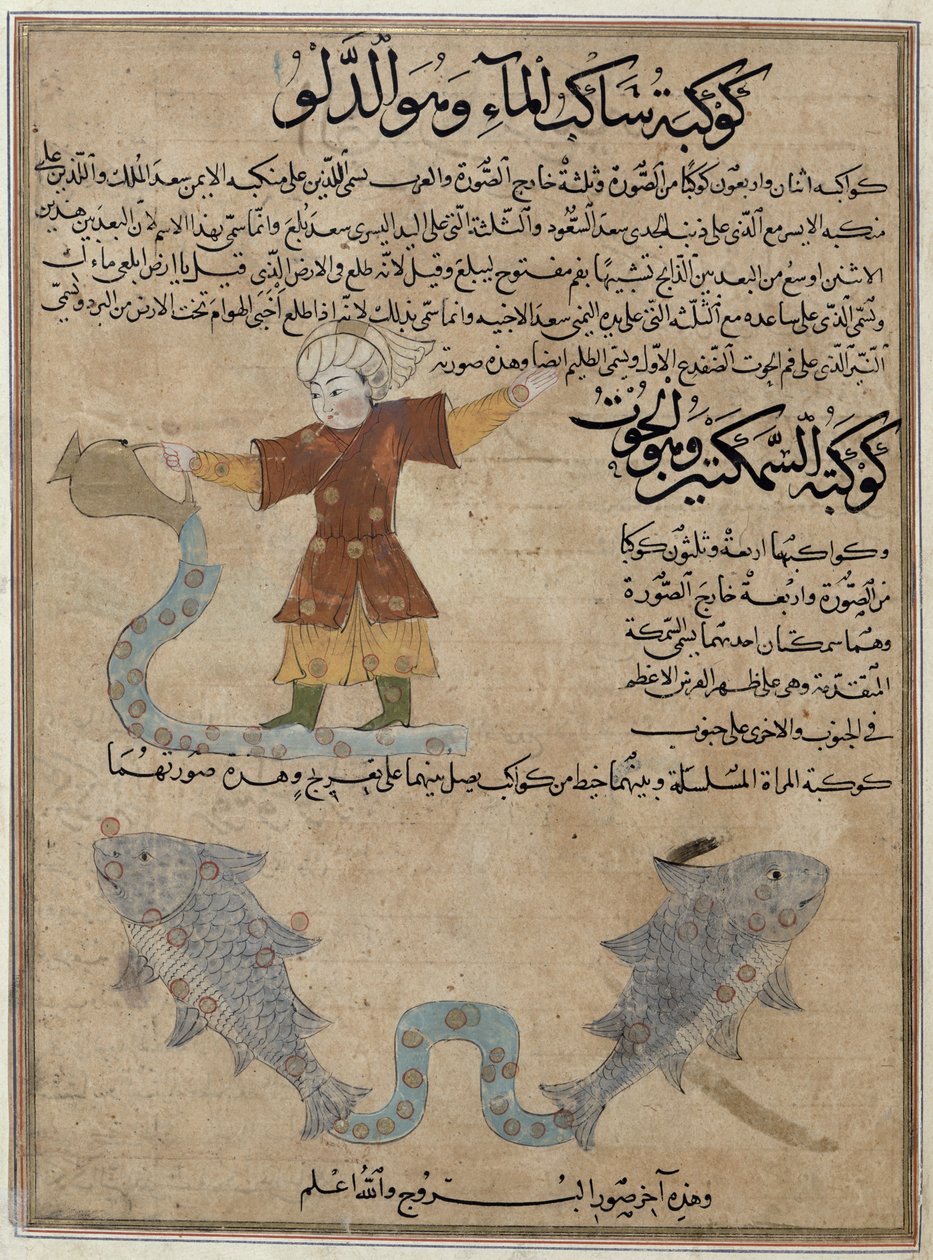 كوكبة ساكب المآء وهو الدَّلو
كواكبه اثنان واربعون كوكبًا من الصّورة وثلثة خارج الصّورة والعرب تسمى اللذين على منكبه الايمن سعد الملك واللذين على
منكبه الايسر مع الذى على ذنب الجدى سعد السّعود والثّلثة التى على اليد اليسرى سعد بُلعَ وانما سمّى بهذا الاسم لانّ البعد بين هذين
الاثنين اوسع من البعد بين الذابح تشبيهًا بفم مفتوح ليبلع وقيل لانّه طلع فى الارض الذى قيل يا ارض ابلعى ماءك
وتسمّى الذى على ساعده مع الثلثه التى على يده اليمنى سعد الاخبيه وانما سمّى بذلك لانّه اذا طلع اختبى الهوام تحت الارض من البرد وتسمّى
النّيّر الذى على فم الحوت الضّفدع الاوّل ويسمّى الظليم ايضا وهذه صورته
كوكبة السّمكتين وهو الحوت
وكواكبها اربعة وثلثون كوكبا
من الصّورة واربعة خارج الصّورة
وهما سمكتان احدهما يسمى السّمكة
المتقدّمة وهى على ظهر الفرس الاعظم
فى الجنوب والاخرى على جنوب
كوكبة المراة المسلسلة وبينهما خيط من كواكب يصل بينهما على تعريج وهذه صورتهما
وهذه آخر صور البروج والله اعلم